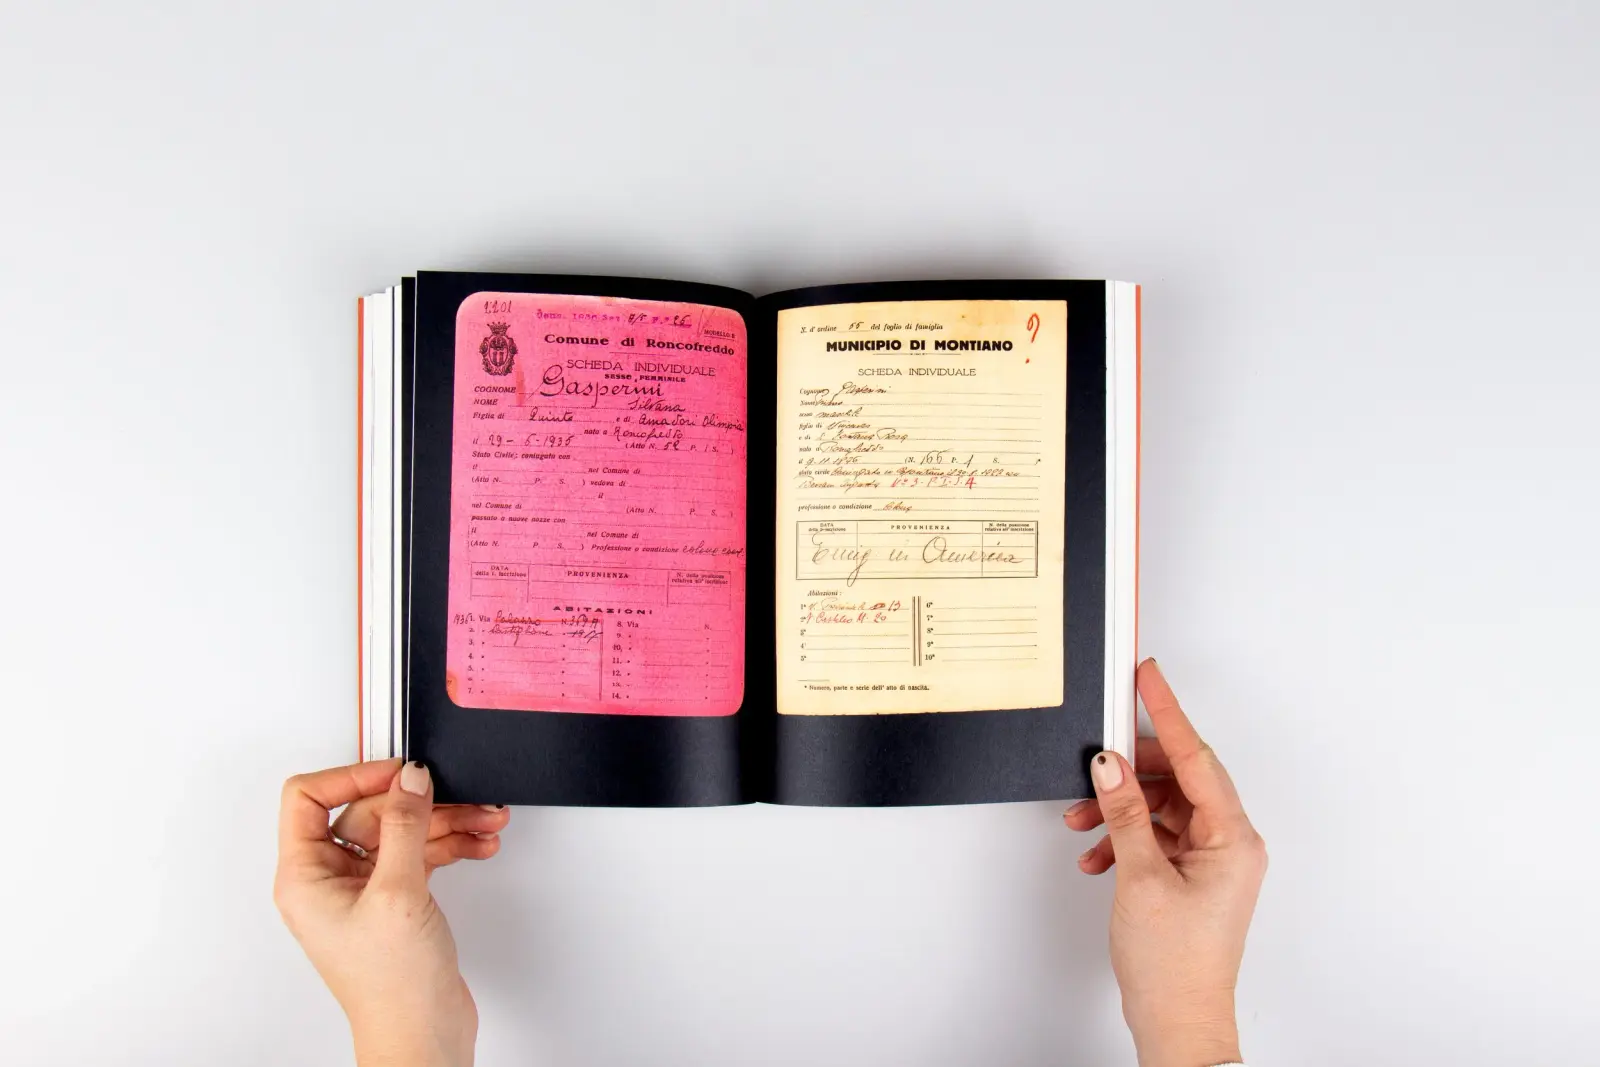 1201
MODELLO B
Comune di Roncofreddo
SCHEDA INDIVIDUALE
SESSO FEMMINILE
COGNOME Gasperini
NOME Silvana
Figlia di Quinto e di Amadori Olimpia
nata a Roncofreddo
il 29-5-1935 (Atto N. 52 P. I S. )
Stato Civile: coniugata con
il nel Comune di
(Atto N. P. S. ) vedova di
il
nel Comune di (Atto N. P. S. )
passata a nuove nozze con
il nel Comune di
(Atto N. P. S. ) Professione o condizione
DATA PROVENIENZA N. della posizione
della i. iscrizione relativa all'iscrizione
ABITAZIONI
1936 1. Via Palazzo N. 8. Via N.
2. » 9. »
3. » 10. »
4. » 11. »
5. » 12. »
13. »
7. » 14. »
N. d'ordine 55 del foglio di famiglia
?
MUNICIPIO DI MONTIANO
SCHEDA INDIVIDUALE
Cognome
Nome
sesso maschile
figlio di Vincenzo
e di Rosa
nato a Roncofreddo
a 9.11.1876 (N. 166 P. 1 S. )*
stato civile
N° 3 P. I S. A
professione o condizione
DATA PROVENIENZA N. della posizione
della iscrizione relativa all'iscrizione
Emig in America
Abitazioni:
1ª 13 6ª
2ª V. Castello N. 20 7ª
3ª 8ª
4ª 9ª
5ª 10ª
* Numero, parte e serie dell'atto di nascita.